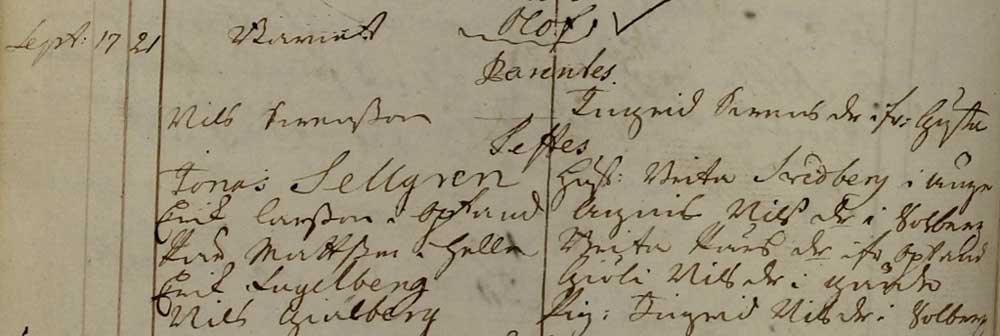 Sept: 17 21 Olof
Parentes.
Nils Svensson Ingrid Svens dr ifr:
Testes
Jonas Sellgren Hust: Brita Svedberg i Ånge
Erik Larsson i Opland Agnis Nils dr i Solberg
Pär Mattsson i Hella Brita Pärs dr ifr Opland
Erik Engelberg Giöli Nils dr i
Nils Giälberg Pig: Ingrid Nils dr i Solberg